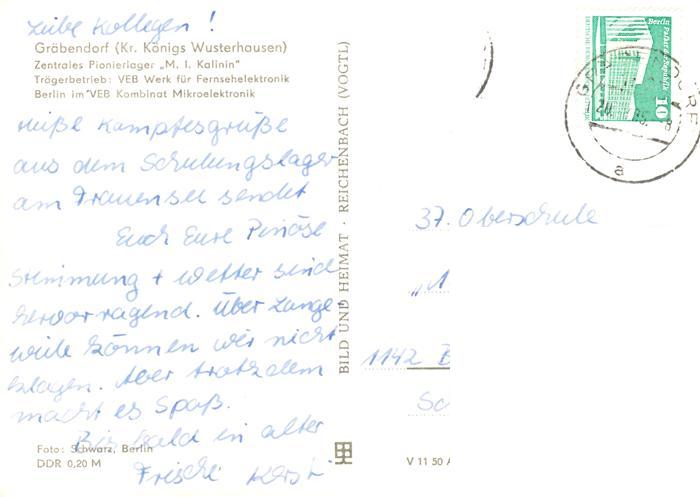 Liebe Kollegen!
Gräbendorf (Kr. Königs Wusterhausen)
Zentrales Pionierlager „M. I. Kalinin"
Trägerbetrieb: VEB Werk für Fernsehelektronik
Berlin im VEB Kombinat Mikroelektronik
Heiße Kampfesgrüße
aus dem Schulungslager
am Frauensee sendet
Euch Eure
Stimmung + Wetter sind
hervorragend. Über Lange
weile können wir nicht
klagen. Aber trotzdem
macht es Spaß.
Bis bald in alter
Frische
Foto: Schwarz, Berlin
DDR 0,20 M
BILD UND HEIMAT · REICHENBACH (VOGTL)
V 11 50
Berlin Palast der Republik
10
a
37. Oberschule
1142 B
Sc